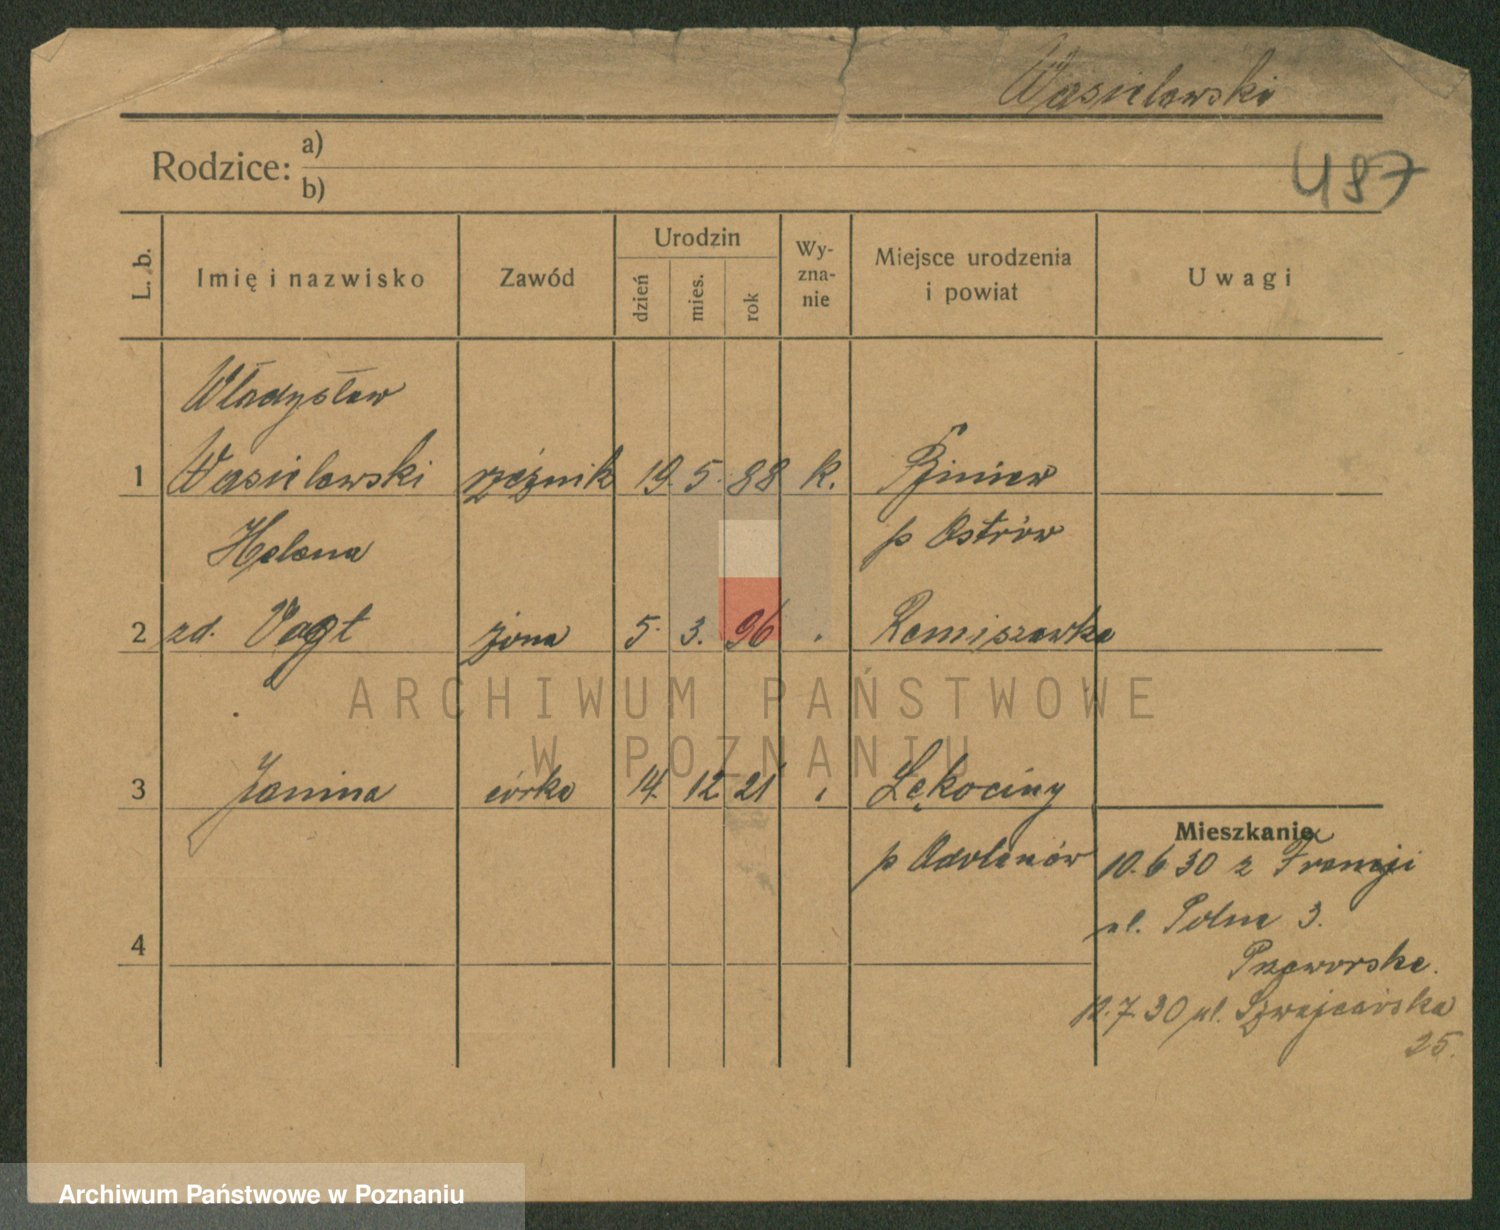 Wasielewski
487
Rodzice: a)
b)
L. b. Imię i nazwisko Zawód Urodzin dzień mies. rok Wy-zna-nie Miejsce urodzenia i powiat Uwagi
Władysław
1 Wasielewski rzeźnik 19. 5. 88 k.
Helena p Ostrów
2 zd. Vogt żona 5. 3. 96 Remiszewka
ARCHIWUM PAŃSTWOWE
W POZNANIU
3 Janina córka 14. 12 21 Łękociny
Mieszkanie
p Odolanów 10. 6 30 z Francji
ul. Polna 3.
4
Przeworska.
12. 7. 30 ul. Szwajcarska
25.
Archiwum Państwowe w Poznaniu